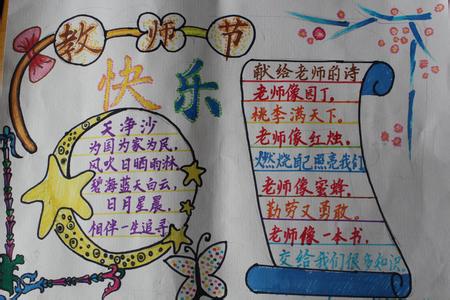 教师节
快乐
天净沙
为国为家为民，
风吹日晒雨林，
碧海蓝天白云，
日月星晨，
相伴一生追寻
献给老师的诗
老师像园丁，
桃李满天下。
老师像红烛，
燃烧自己照亮我们
老师像蜜蜂，
勤劳又勇敢。
老师像一本书，
交给我们很多知识。